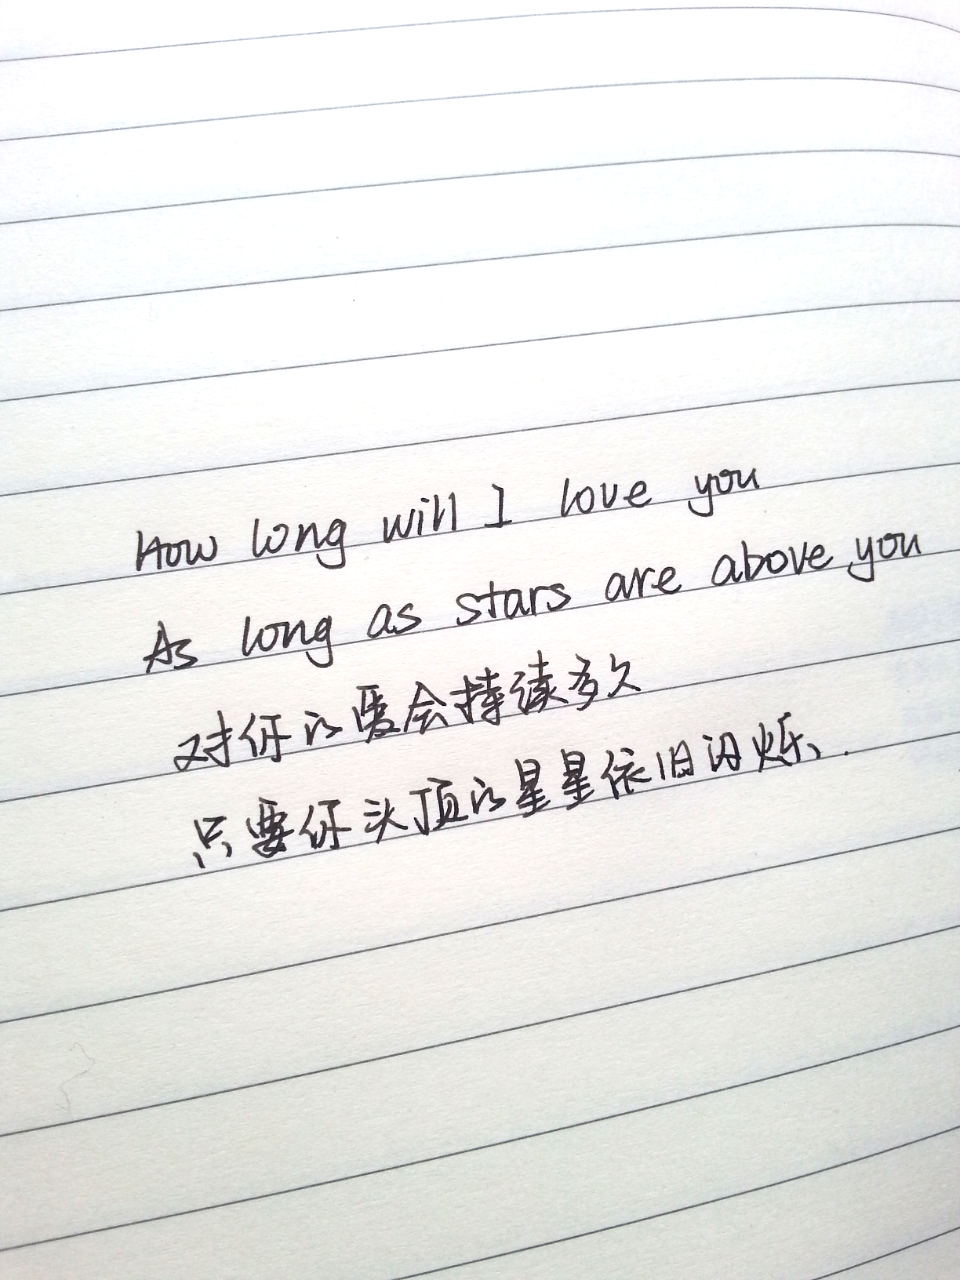 How long will I love you
As long as stars are above you
对你的爱会持续多久
只要你头顶的星星依旧闪烁.